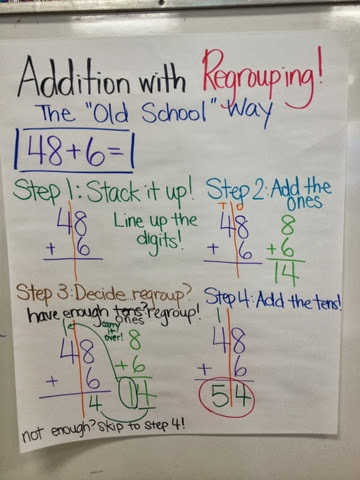 Addition with Regrouping!
The "Old School" Way
48+6=
Step 1: Stack it up!
48
+ 6
Line up the
digits!
Step 2: Add the
ones
T O
48
+ 6
8
+6
14
Step 3: Decide regroup?
have enough tens? regroup!
ones
1
carry
it
over!
48
+ 6
4
8
+6
14
not enough? Skip to step 4!
Step 4: Add the tens!
1
48
+ 6
54